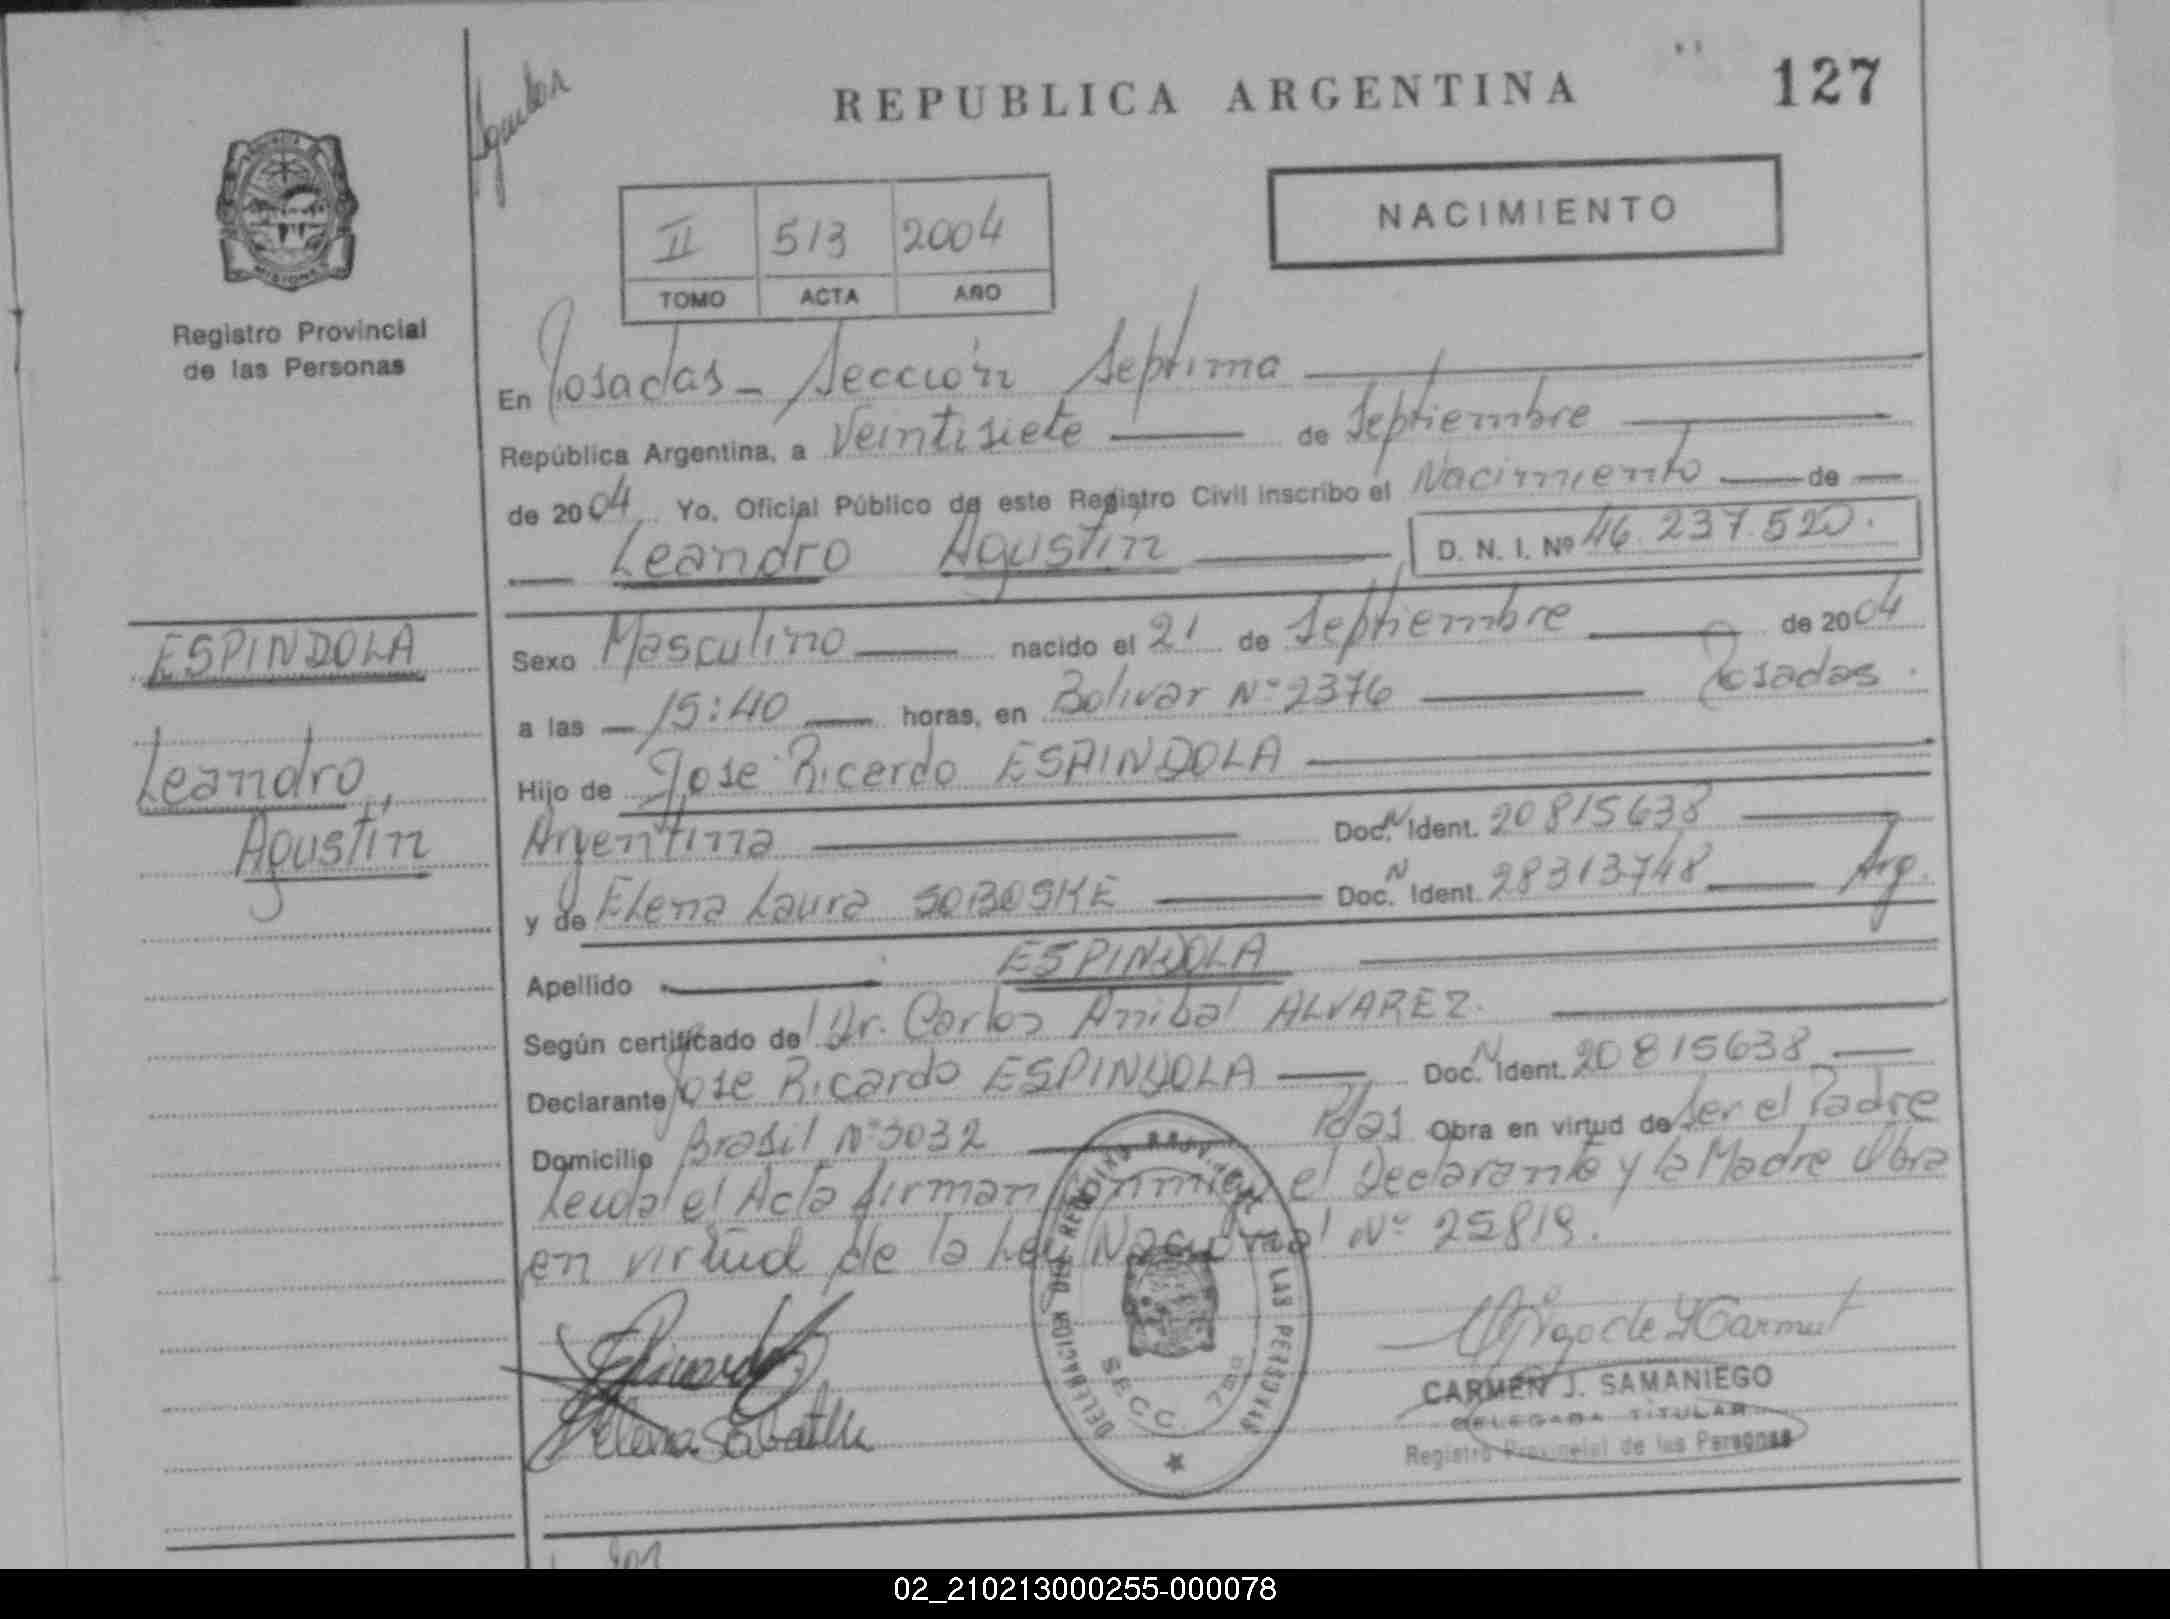 REPUBLICA ARGENTINA
127
NACIMIENTO
II 513 2004
TOMO ACTA AÑO
Registro Provincial
de las Personas
En Posadas - Sección Septima
República Argentina, a Veintisiete de Septiembre
de 2004 Yo, Oficial Público de este Registro Civil inscribo el Nacimiento de
Leandro Agustín D. N. I. Nº 46.237.520.
ESPINDOLA
Leandro,
Agustín
Sexo Masculino nacido el 21 de Septiembre de 2004
a las 15:40 horas, en Bolivar Nº 2376 Posadas.
Hijo de Jose Ricardo ESPINDOLA
Argentina Doc. N Ident. 20815638
y de Elena Laura Doc. N Ident. 28313748 Arg.
Apellido ESPINDOLA
Según certificado del Dr. Carlos Anibal ALVAREZ.
Declarante Jose Ricardo ESPINDOLA Doc. N Ident. 20815638
Domicilio Brasil Nº 3032 Pdas Obra en virtud de Ser el Padre
Leida el Acta firman conmigo el Declarante y la Madre Obra
en virtud de la Ley Nacional Nº 25819.
DELEGACION DEL REGISTRO PROVINCIAL DE LAS PERSONAS
SECC. 7ma
CARMEN J. SAMANIEGO
DELEGADA TITULAR
Registro Provincial de las Personas
02_210213000255-000078